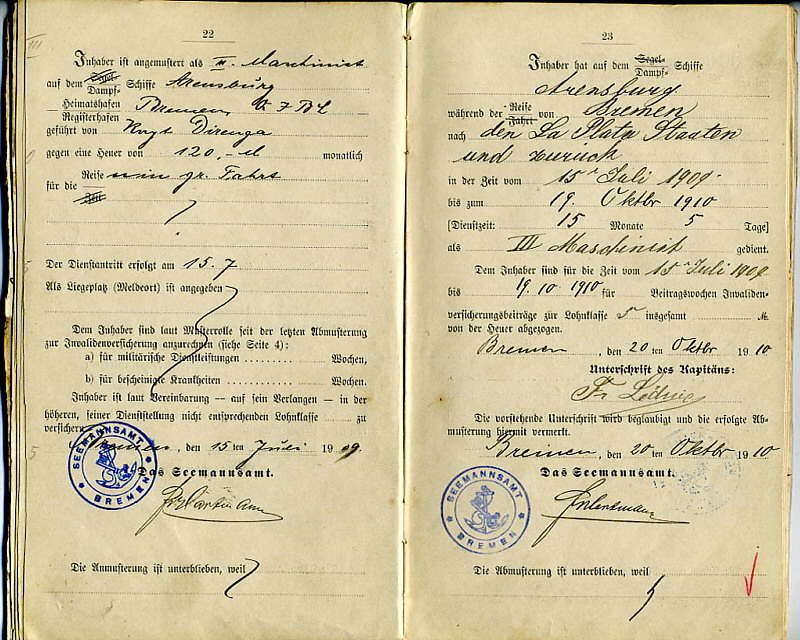 22
Inhaber ist angemustert als III. Maschinist
auf dem Segel- Dampf- Schiffe Arensburg
Heimatshafen Registerhafen Bremen
geführt von Kapt
gegen eine Heuer von 120,- M monatlich
für die Reise Zeit gr. Fahrt
Der Dienstantritt erfolgt am 15. 7
Als Liegeplatz (Meldeort) ist angegeben
Dem Inhaber sind laut Musterrolle seit der letzten Abmusterung
zur Invalidenversicherung anzurechnen (siehe Seite 4):
a) für militärische Dienstleistungen .......... Wochen,
b) für bescheinigte Krankheiten .......... Wochen.
Inhaber ist laut Vereinbarung — auf sein Verlangen — in der
höheren, seiner Dienststellung nicht entsprechenden Lohnklasse ........ zu
versichern
Bremen, den 15 ten Juli 19 09.
Das Seemannsamt.
SEEMANNSAMT BREMEN
Die Anmusterung ist unterblieben, weil
23
Inhaber hat auf dem Segel- Dampf- Schiffe
Arensburg
während der Reise Fahrt von Bremen
nach den La Plata Staaten
und zurück
in der Zeit vom 15 Juli 1909
bis zum 19. Oktbr 1910
[Dienstzeit: 15 Monate 5 Tage]
als III Maschinist gedient.
Dem Inhaber sind für die Zeit vom 15 Juli 1909
bis 19. 10 1910 für Beitragswochen Invaliden-
versicherungsbeiträge zur Lohnklasse insgesamt M.
von der Heuer abgezogen.
Bremen, den 20 ten Oktbr 19 10
Unterschrift des Kapitäns:
Die vorstehende Unterschrift wird beglaubigt und die erfolgte Ab-
musterung hiermit vermerkt.
Bremen, den 20 ten Oktbr 19 10
Das Seemannsamt.
SEEMANNSAMT BREMEN
Die Abmusterung ist unterblieben, weil